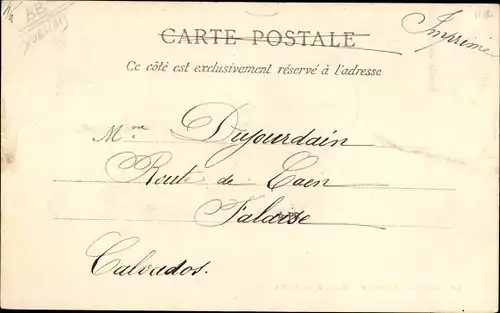 Imprimé
CARTE POSTALE
Ce côté est exclusivement réservé à l'adresse
Mme Dujourdain
Route de Caen
Falaise
Calvados.